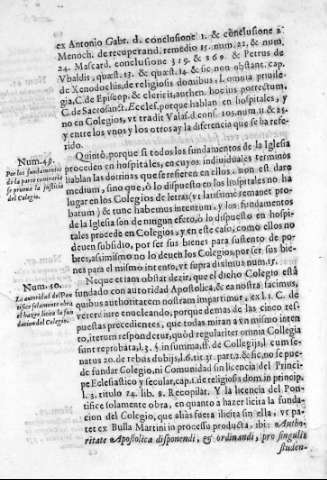 ex Antonio Gabr. d. conclusione 1. & conclusione 2.
Menoch. de recuperand. remedio 15. num. 22. & num.
24. Mascard. conclusione 319. & 269. & Petrus de
Vbaldis, quæst. 13. & quæst. 14. & sic non obstant. cap.
de Xenodochis, de religiosis domibus, l. omnia priuile-
gia, C. de Episcop. & clericis, authen. hocius porrectum,
C. de Sacrosanct. Eccles. porque hablan en hospitales, y
no en Colegios, vt tradit Valas. d. cons. 105. num. 11. & 25.
y entre los vnos y los otros ay la diferencia que se ha refe-
rido.
Num. 49.
Por los fundamentos
de la parte contraria
se prueua la justicia
del Colegio.
Quintò, porque si todos los fundamentos de la Iglesia
proceden en hospitales, en cuyos indiuiduales terminos
hablan las doctrinas que se refieren en ellos, non est dare
medium, sino que, ò lo dispuesto en los hospitales no ha
lugar en los Colegios de letras (vt latissimè remanet pro-
batum) & tunc habemus intentum, y los fundamentos
de la Iglesia son de ningun efeto, ò lo dispuesto en hospi-
tales procede en Colegios, y en este caso, como ellos no
deuen subsidio, por ser sus bienes para sustento de po-
bres, assimismo no lo deuen los Colegios, por ser sus bie-
nes para el mismo intento, vt supra diximus num. 15.
Num. 50.
La autoridad del Pon
tifice solamente obra
el hazer licita la fun
dacion del Colegio.
Neque etiam obstat dezir, que el dicho Colegio està
fundado con autoridad Apostolica, & ea nostra facimus,
quibus authoritatem nostram impartimur, ex l. 1. C. de
vetere iure enucleando, porque demas de las cinco res-
puestas precedentes, que todas miran a vn mismo inten
to, iterum respondetur, quòd regulariter omnia Collegia
sunt reprobata, l. 3. §. in summa, ff. de Collegijs, l. cum se-
natus 20. de rebus dubijs, l. 6. tit. 31. part. 2. & sic, no se pue-
de fundar Colegio, ni Comunidad sin licencia del Princi-
pe Eclesiastico y secular, cap. 1. de religiosis dom. in princip.
l. 3. titulo 14. lib. 8. Recopilat. Y la licencia del Pon-
tifice solamente obra, en quanto a hazer licita la funda-
cion del Colegio, que aliàs fuera ilicita sin ella, vt pa-
tet ex Bulla Martini in processu producta, ibi: Autho-
ritate Apostolica disponendi, & ordinandi, pro singulis
studen-